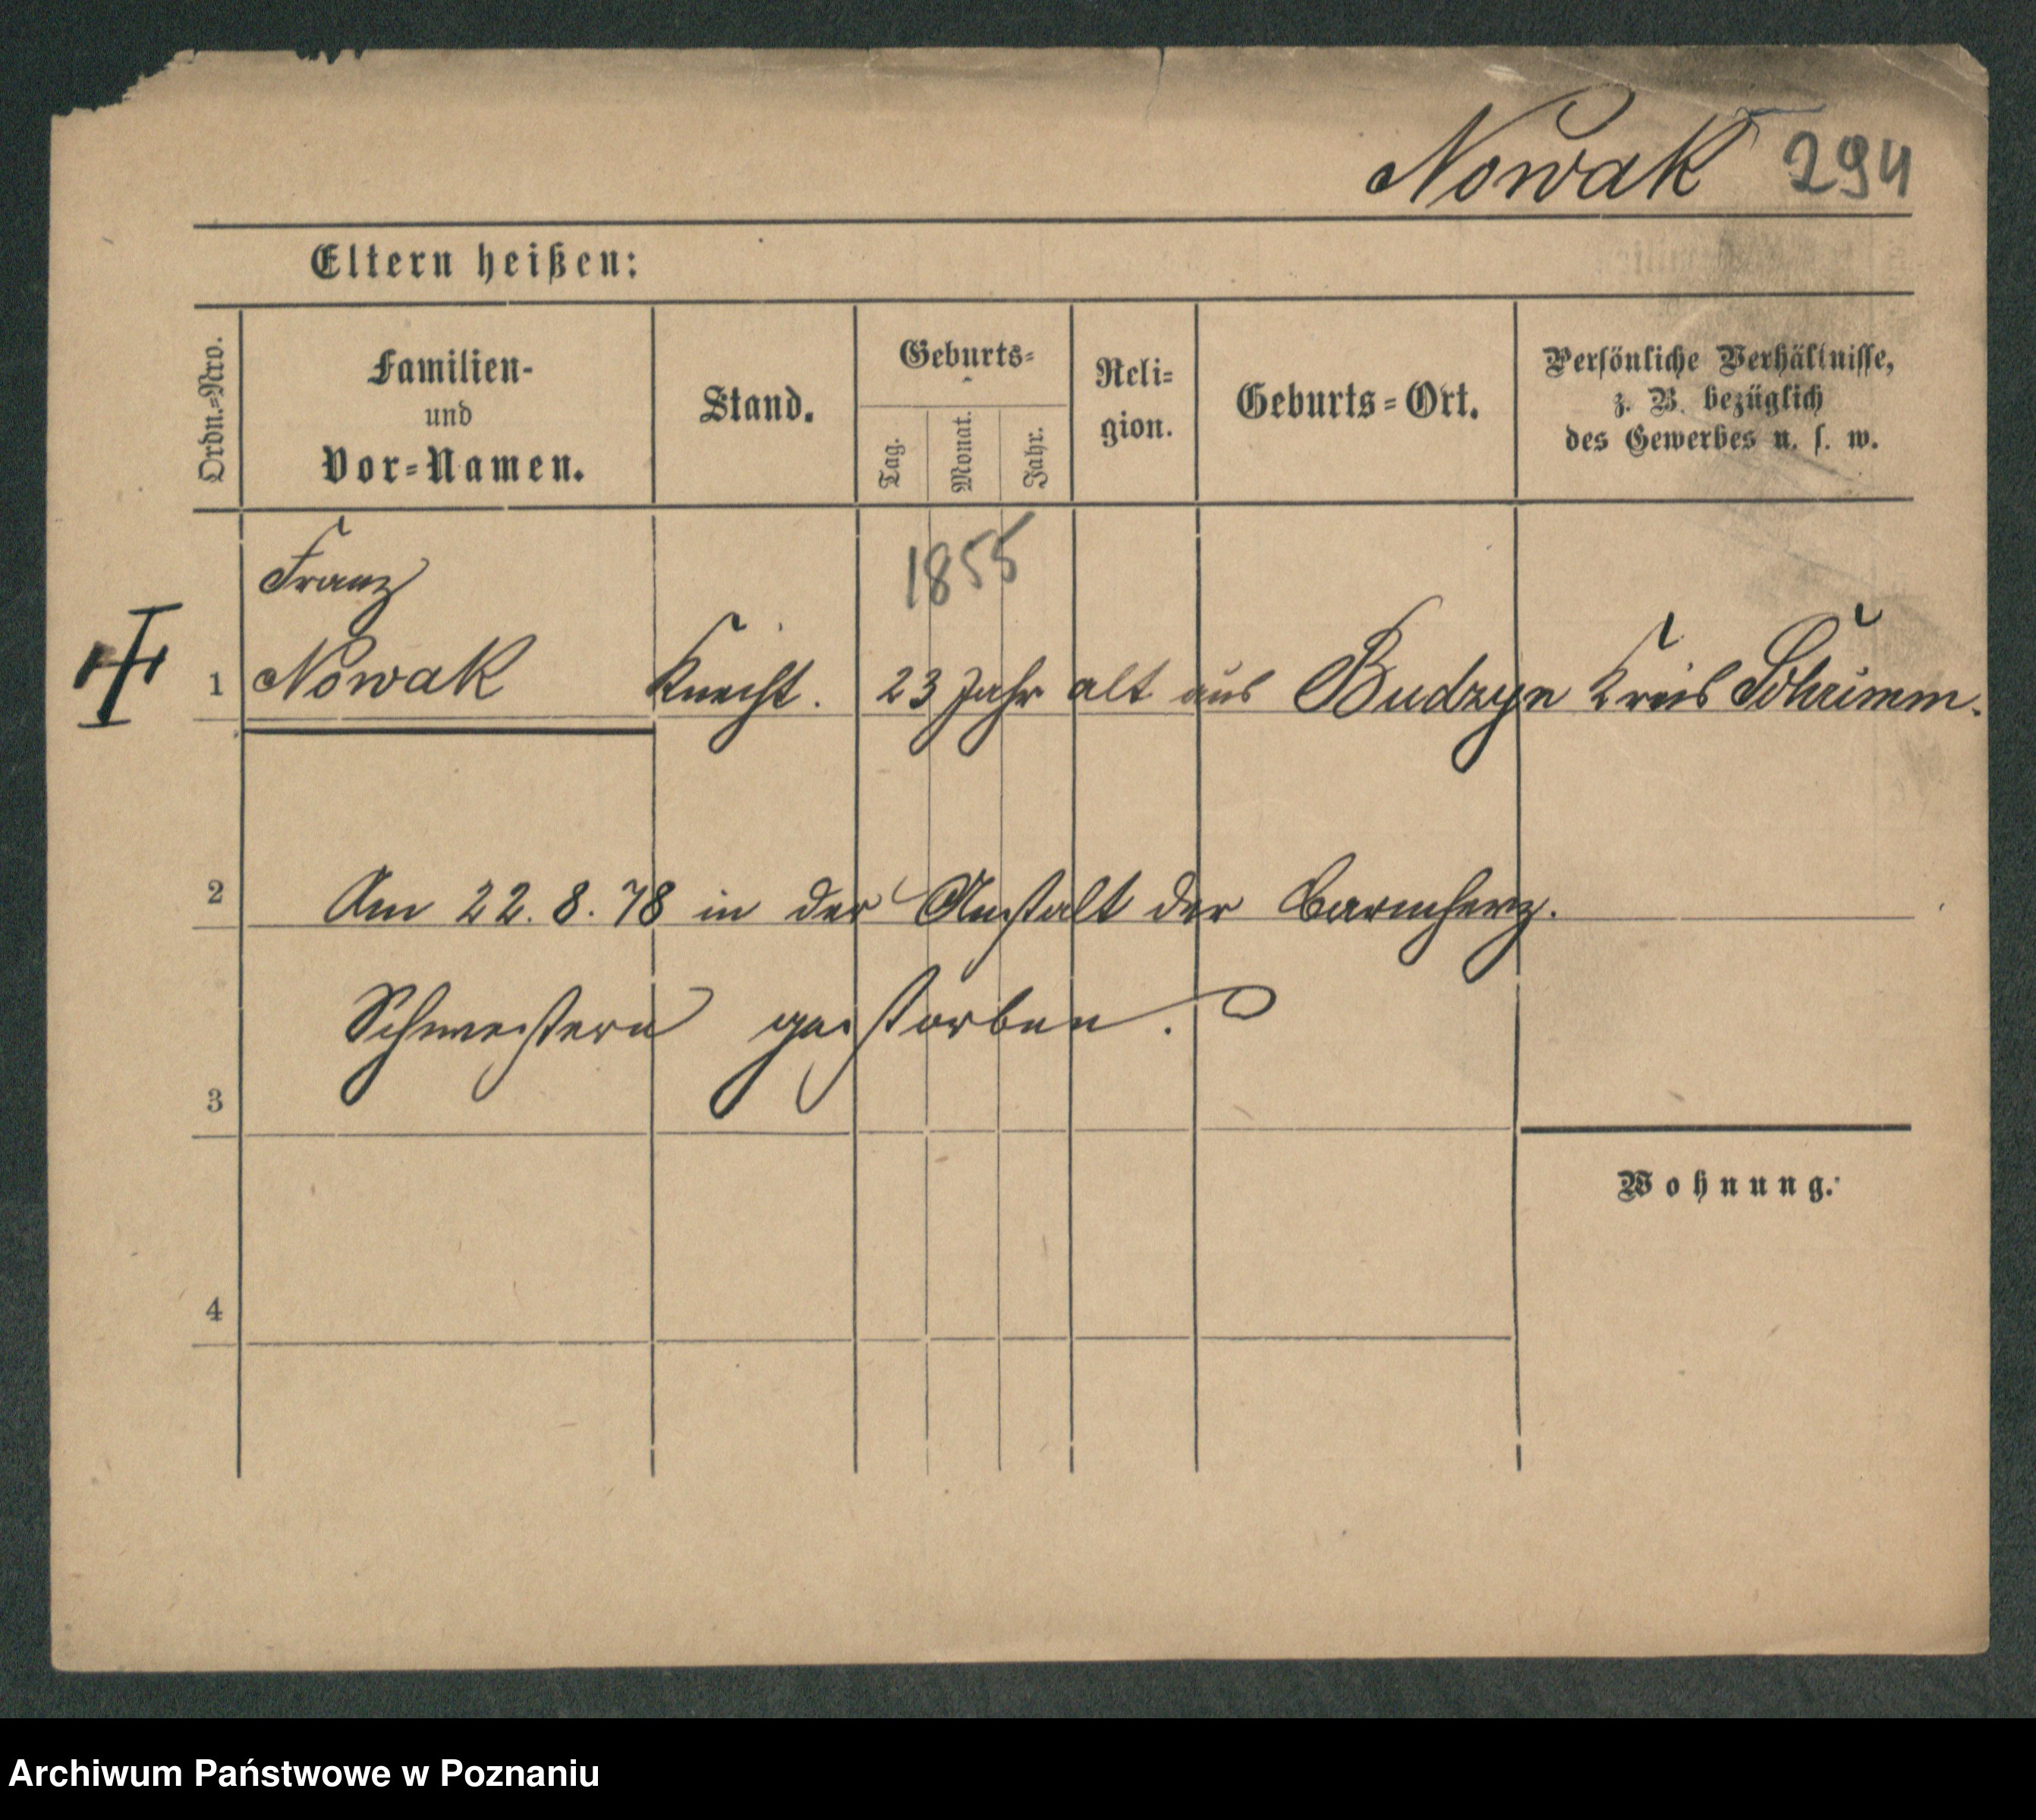 Nowak 294
Eltern heißen:
Ordn.=Nro.
Familien-
und
Vor=Namen.
Stand.
Geburts=
Tag.
Monat.
Jahr.
Reli=
gion.
Geburts=Ort.
Persönliche Verhältnisse,
z. B. bezüglich
des Gewerbes u. s. w.
Franz
1855
1 Nowak Knecht. 23 Jahr alt aus Budzyn Kreis Schrimm.
2 Am 22.8.78 in der Anstalt der barmherz.
Schwestern gestorben.
3
Wohnung.
4
Archiwum Państwowe w Poznaniu